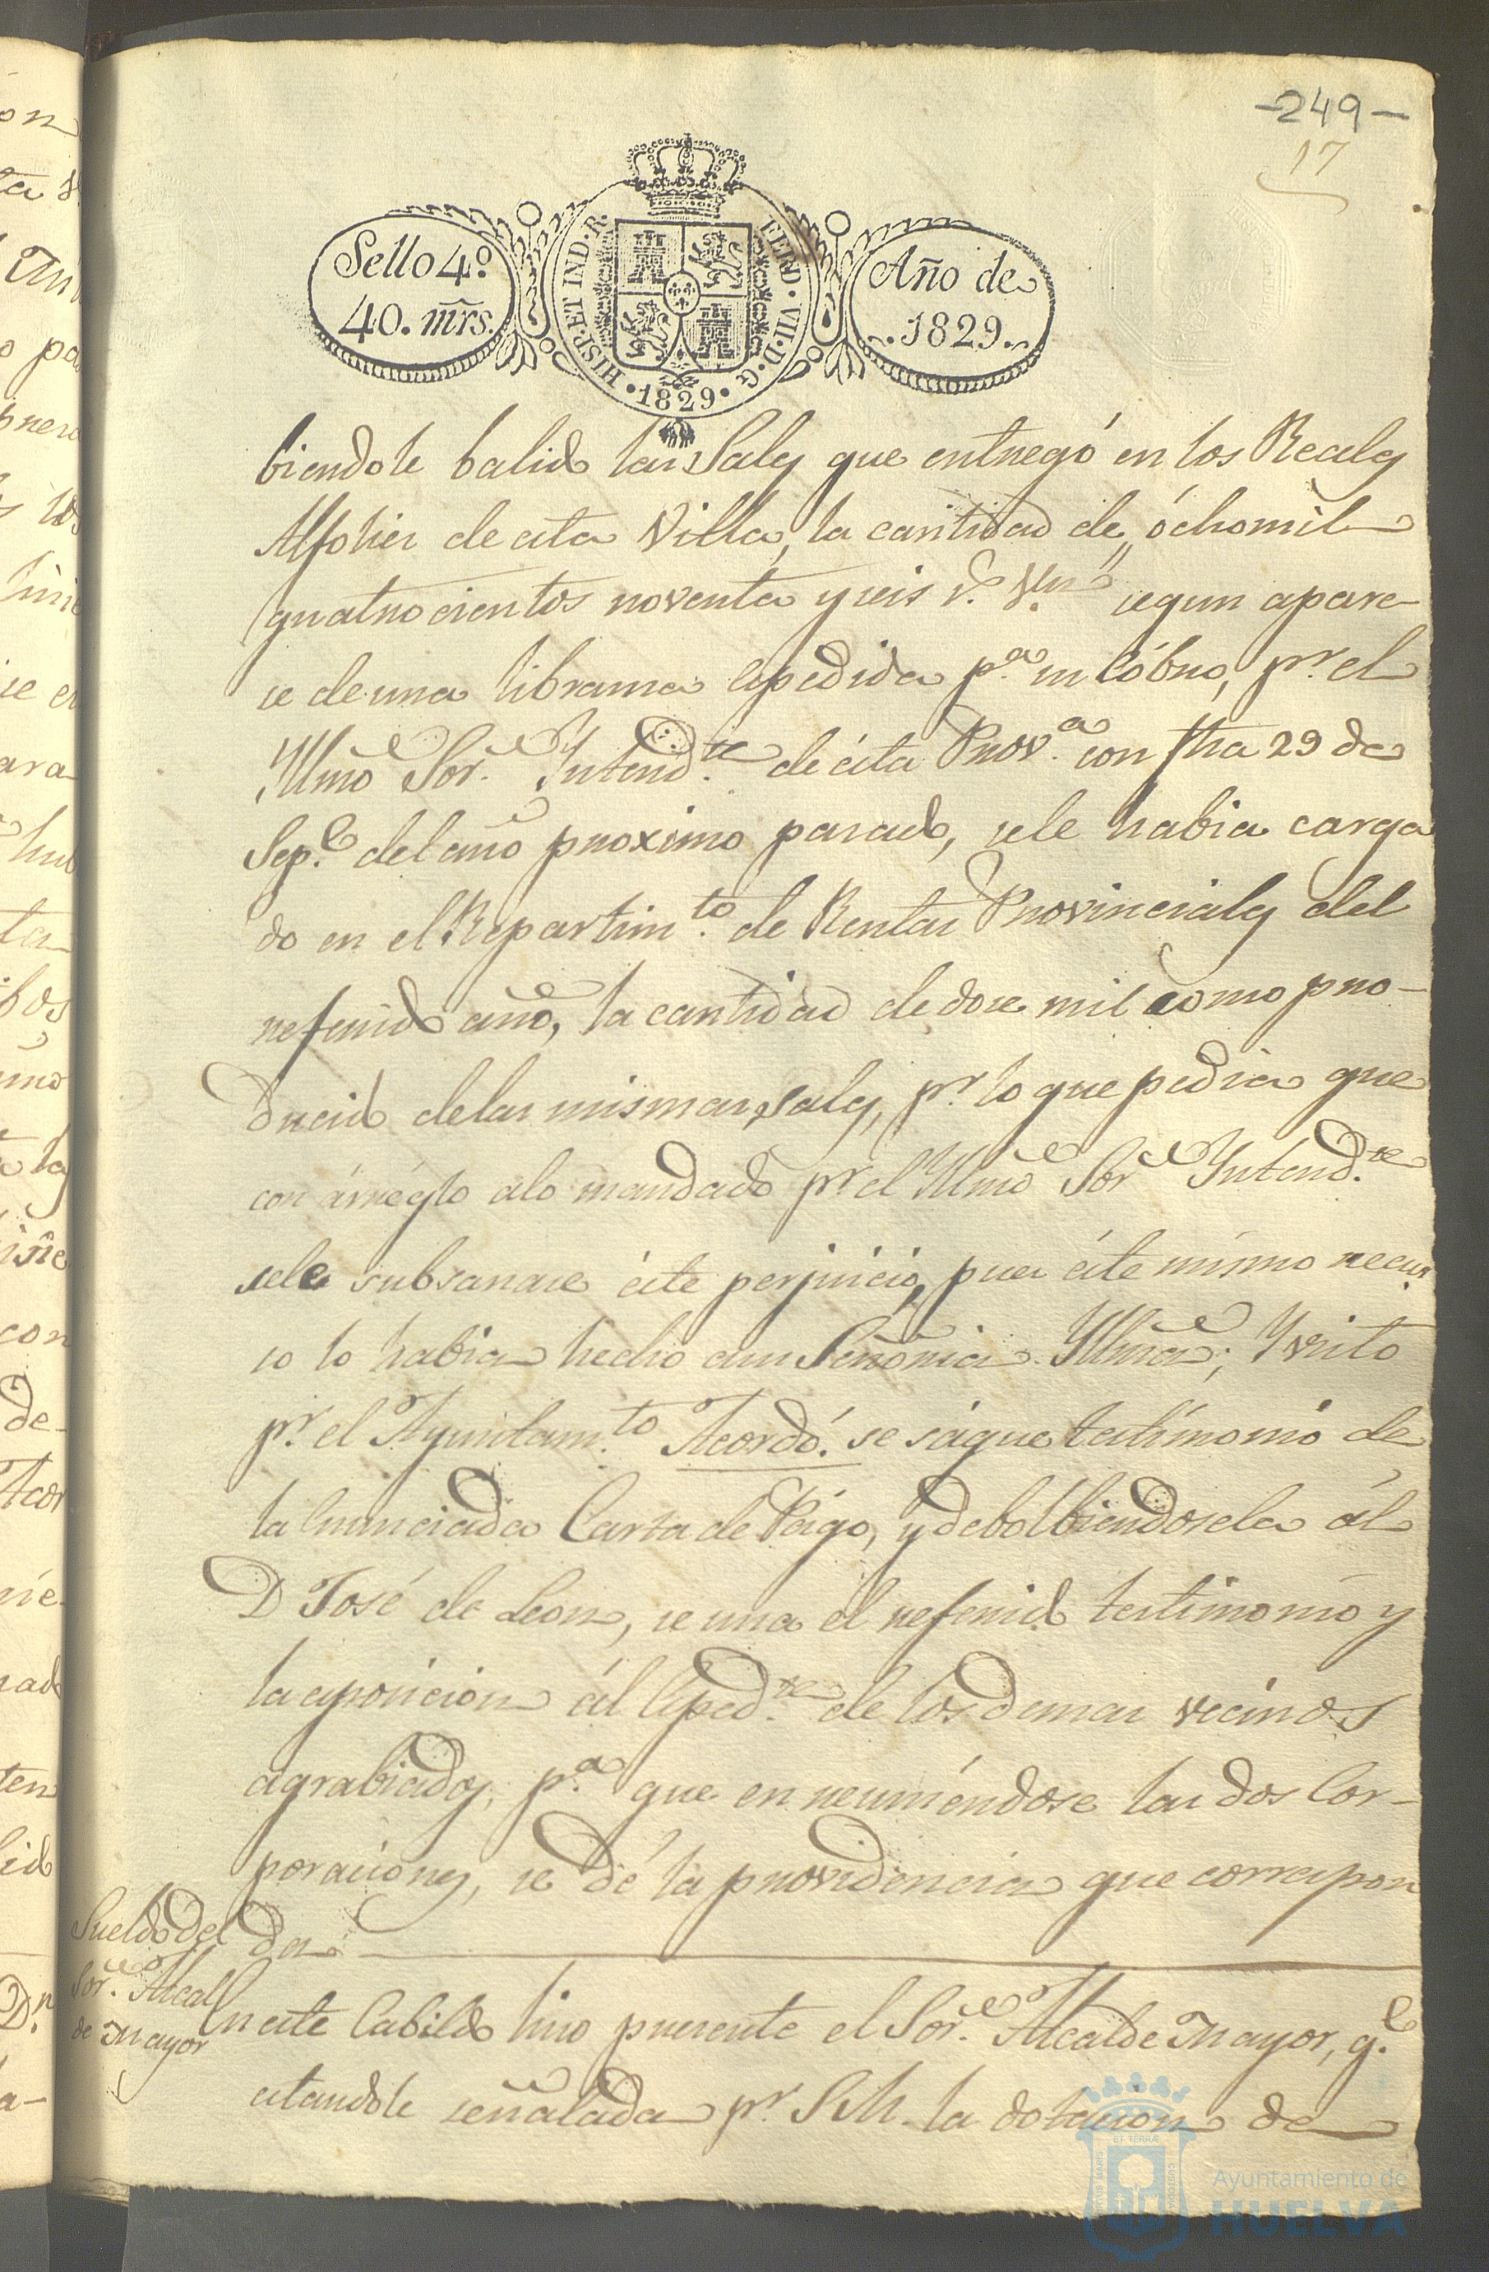 -249-
17
Sello 4º
40. mrs.
HISP. ET IND. R.
FERD. VII. D. G.
1829
Año de
1829.
biendole balido las Sales que entregó en los Reales
Alfolies de esta Villa, la cantidad de, óchomil
quatrocientos noventa y seis r.s V.n segun apare-
se de una libransa espedida p.a su cóbro, p.r el
Yllmo Sor. Yntend.te de ésta Prov.a con fha 29 de
Sep.e del año proximo pasado, sele habia carga
do en el Repartim.to de Rentas Provinciales del
referido año, la cantidad de dose mil como pro-
ducido delas mismas sales, p.r lo que pedia que
con árréglo alo mandado p.r el Yllmo Sor Yntend.te
sele subsanase éste perjuicio, pues éste mismo recur
so lo habia hecho asu Señoria Yllma; Y visto
p.r el Ayuntam.to Acordó: se sáque testimonio de
la Enunciada Carta de Págo, y debolbiendosela ál
D José de Leon, se una el referido testimonio y
la esposicion ál Esped.te de los demas vecinos
agrabiados, p.a que en reuniéndose las dos Cor-
poraciones, se dé la providencia que correspon
da
Sueldo del
Sor. Alcal
de Mayor
En este Cabildo hiso presente el Sor. Alcalde Mayor, q.e
estandole señalada p.r S.M. la dotacion de
Ayuntamiento de
HUELVA